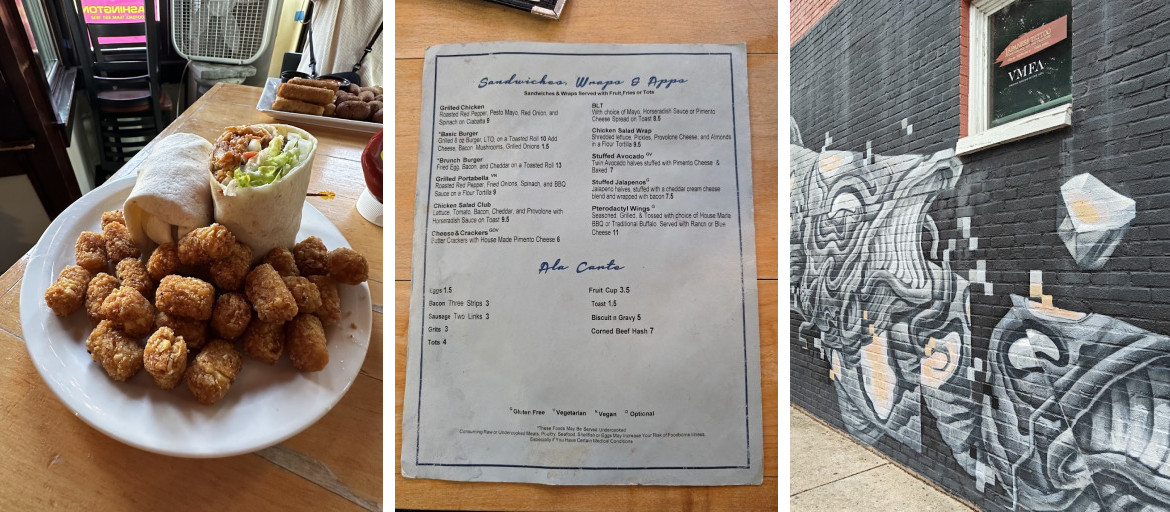 Sandwiches, Wraps & Apps
Sandwiches & Wraps Served with Fruit, Fries or Tots
Grilled Chicken
Roasted Red Pepper, Pesto Mayo, Red Onion, and
Spinach on Ciabatta 9
*Basic Burger
Grilled 8 oz Burger, LTO, on a Toasted Roll 10 Add
Cheese, Bacon, Mushrooms, Grilled Onions 1.5
*Brunch Burger
Fried Egg, Bacon, and Cheddar on a Toasted Roll 13
Grilled Portabella VN
Roasted Red Pepper, Fried Onions, Spinach, and BBQ
Sauce on a Flour Tortilla 9
Chicken Salad Club
Lettuce, Tomato, Bacon, Cheddar, and Provolone with
Horseradish Sauce on Toast 9.5
Cheese & Crackers GOV
Butter Crackers with House Made Pimento Cheese 6
BLT
With choice of Mayo, Horseradish Sauce or Pimento
Cheese Spread on Toast 8.5
Chicken Salad Wrap
Shredded lettuce, Pickles, Provolone Cheese, and Almonds
in a Flour Tortilla 9.5
Stuffed Avocado GV
Twin Avocado halves stuffed with Pimento Cheese &
Baked 7
Stuffed Jalapenos G
Jalapeno halves, stuffed with a cheddar cream cheese
blend and wrapped with bacon 7.5
Pterodactyl Wings G
Seasoned, Grilled, & Tossed with choice of House Maria
BBQ or Traditional Buffalo. Served with Ranch or Blue
Cheese 11
Ala Carte
Eggs 1.5
Bacon Three Strips 3
Sausage Two Links 3
Grits 3
Tots 4
Fruit Cup 3.5
Toast 1.5
Biscuit n Gravy 5
Corned Beef Hash 7
G Gluten Free V Vegetarian N Vegan O Optional
*These Foods May Be Served Undercooked
Consuming Raw or Undercooked Meats, Poultry, Seafood, Shellfish or Eggs May Increase Your Risk of Foodborne Illness,
Especially if You Have Certain Medical Conditions
JAPANESE TATTOO
VMFA